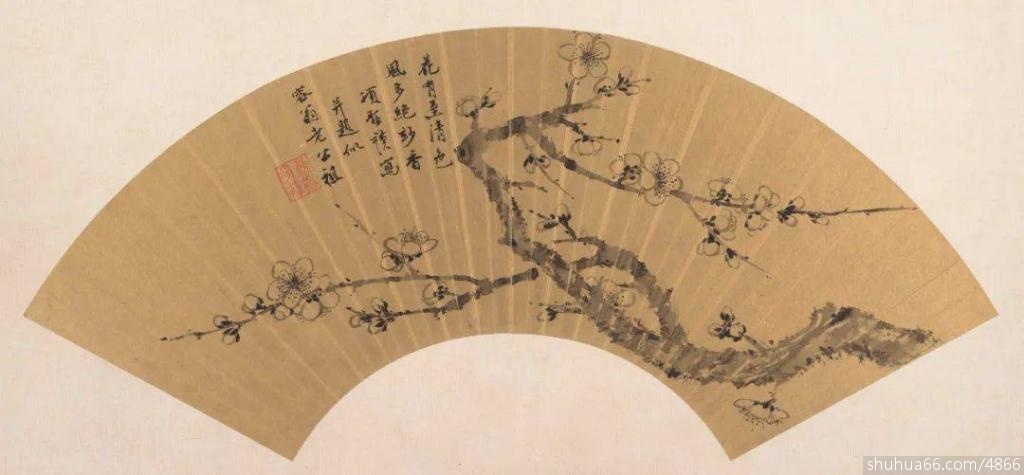 花有至清色
風多絕妙香
項聖謨寫
并題似
容翁老公祖
shuhua66.com/4866